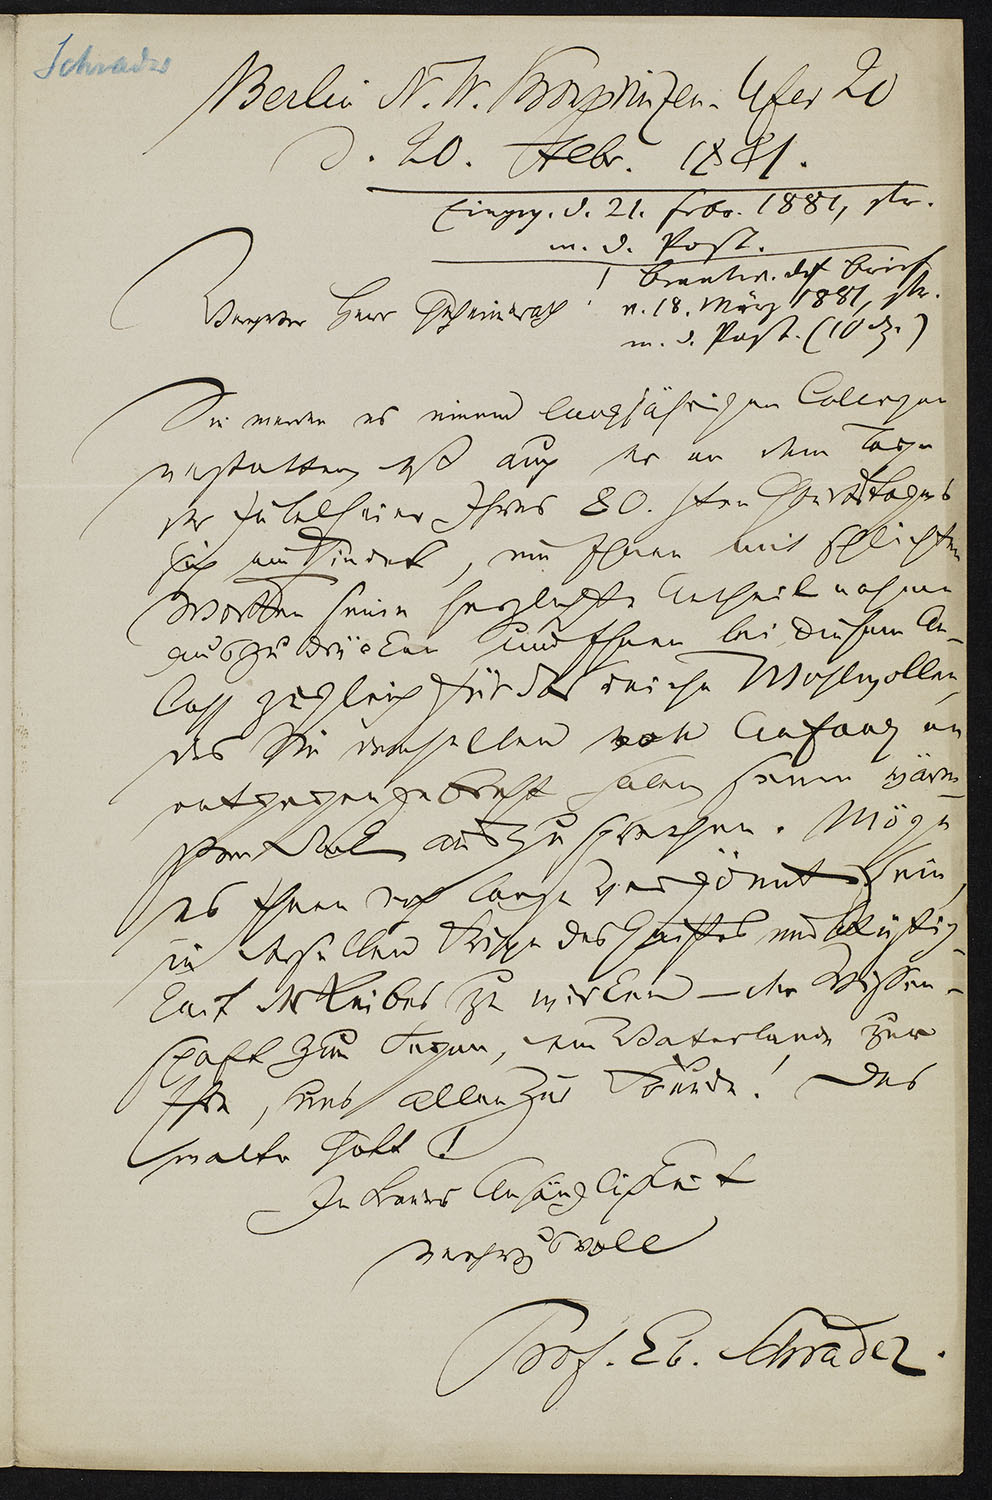 Schrader
Berlin N. W. Kronprinzen-Ufer 20
d. 20. Febr. 1881.
Eingeg. d. 21. Febr. 1881,
m. d. Post.
beantw. dch Brief
v. 18. März 1881,
m. d. Post. (10 )
Verehrter Herr Geheimerath!
Sie werden es einem langjährigen Collegen
verstatten, daß auch er an dem Tage
der Jubelfeier Ihres 80. sten Geburtstages
sich einfindet, um Ihnen mit schlichten
Worten seine herzlichste Antheilnahme
auszudrücken und Ihnen bei diesem An-
lass zugleich für das reiche Wohlwollen,
das Sie demselben von Anfang an
entgegengebracht haben seinen wärm-
sten Dank auszusprechen. Möge
es Ihnen noch lange vergönnt sein,
in derselben Frische des Geistes und
keit des Leibes zu wirken – der Wissen-
schaft zum Segen, dem Vaterlande zur
Ehre, uns allen zur Freude! Das
walte Gott!
In treuer Anhänglichkeit
verehrungsvoll
Prof. Eb. Schrader.